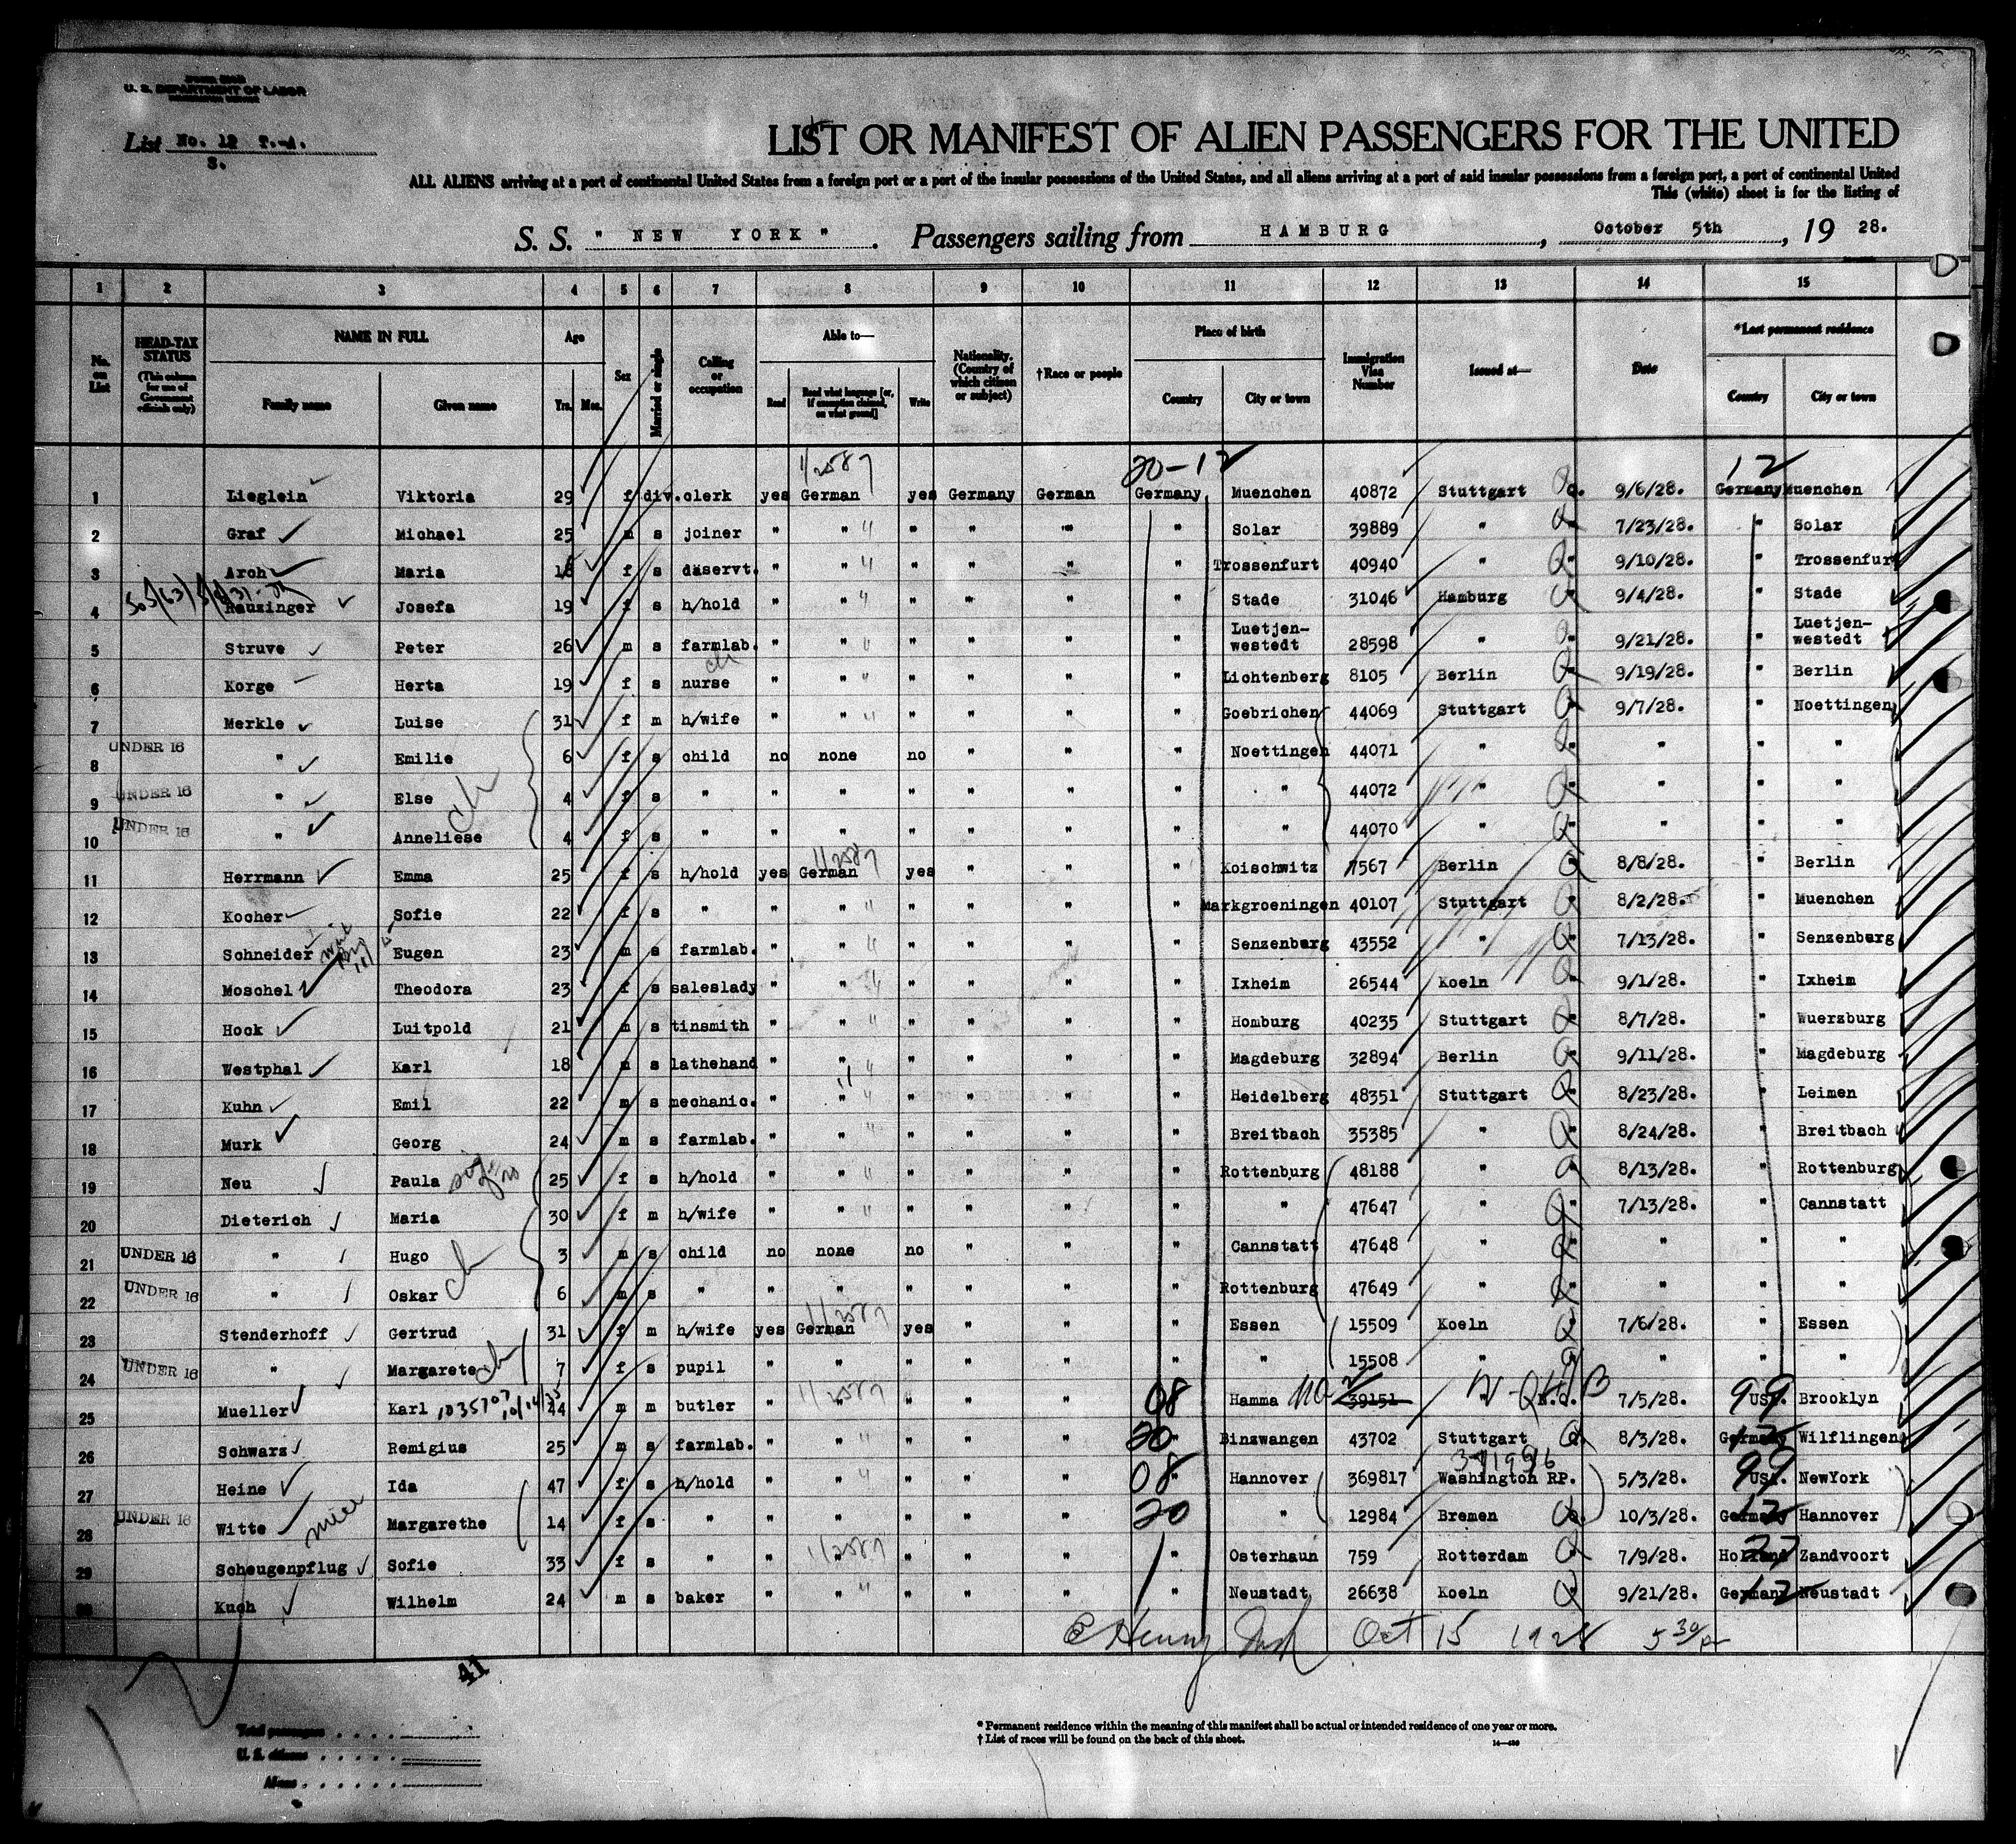 U. S. DEPARTMENT OF LABOR
List No. 12 T.-A.
S.
LIST OR MANIFEST OF ALIEN PASSENGERS FOR THE UNITED
ALL ALIENS arriving at a port of continental United States from a foreign port or a port of the insular possessions of the United States, and all aliens arriving at a port of said insular possessions from a foreign port, a port of continental United
This (white) sheet is for the listing of
S. S. " NEW YORK " . Passengers sailing from HAMBURG , October 5th , 19 28.
1 2 3 4 5 6 7 8 9 10 11 12 13 14 15
No. on List HEAD-TAX STATUS (This column for use of Government officials only) NAME IN FULL Family name Given name Age Yrs. Mos. Sex Married or single Calling or occupation Able to— Read Read what language [or, if exemption claimed, on what ground] Write Nationality. (Country of which citizen or subject) †Race or people Place of birth Country City or town Immigration Visa Number Issued at— Date *Last permanent residence Country City or town
20-12 12
1 Lieglein Viktoria 29 f div. clerk yes German yes Germany German Germany Muenchen 40872 Stuttgart 9/6/28. Germany Muenchen
2 Graf Michael 25 m s joiner " " " " " " Solar 39889 " 7/23/28. " Solar
3 Arch Maria 18 f s " " " " " " Trossenfurt 40940 " 9/10/28. " Trossenfurt
4 Rauzinger Josefa 19 f s h/hold " " " " " " Stade 31046 Hamburg 9/4/28. " Stade
5 Struve Peter 26 m s farmlab. " " " " " " Luetjen-westedt 28598 " 9/21/28. " Luetjen-westedt
6 Korge Herta 19 f s nurse " " " " " " Lichtenberg 8105 Berlin 9/19/28. " Berlin
7 Merkle Luise 31 f m h/wife " " " " " " Goebrichen 44069 Stuttgart 9/7/28. " Noettingen
8 UNDER 16 " Emilie 6 f s child no none no " " " Noettingen 44071 " " " "
9 UNDER 16 " Else 4 f s " " " " " 44072 " " " "
10 UNDER 16 " Anneliese 4 f s " " " " " 44070 " " " "
11 Herrmann Emma 25 f s h/hold yes German yes " " " Koischwitz 7567 Berlin 8/8/28. " Berlin
12 Kocher Sofie 22 f s " " " " " " " Markgroeningen 40107 Stuttgart 8/2/28. " Muenchen
13 Schneider Eugen 23 m s farmlab. " " " " " " Senzenberg 43552 " 7/13/28. " Senzenberg
14 Moschel Theodora 23 f s saleslady " " " " " " Ixheim 26544 Koeln 9/1/28. " Ixheim
15 Hock Luitpold 21 m s tinsmith " " " " " " Homburg 40235 Stuttgart 8/7/28. " Wuerzburg
16 Westphal Karl 18 m s lathehand " " " " " " Magdeburg 32894 Berlin 9/11/28. " Magdeburg
17 Kuhn Emil 22 m s mechanic. " " " " " " Heidelberg 48351 Stuttgart 8/23/28. " Leimen
18 Murk Georg 24 m s farmlab. " " " " " " Breitbach 35385 " 8/24/28. " Breitbach
19 Neu Paula 25 f s h/hold " " " " " " Rottenburg 48188 " 8/13/28. " Rottenburg
20 Dieterich Maria 30 f m h/wife " " " " " " " 47647 " 7/13/28. " Cannstatt
21 UNDER 16 " Hugo 3 m s child no none no " " " Cannstatt 47648 " " " "
22 UNDER 16 " Oskar 6 m s " " " " " " " Rottenburg 47649 " " " "
23 Stenderhoff Gertrud 31 f m h/wife yes German yes " " " Essen 15509 Koeln 7/6/28. " Essen
24 UNDER 16 " Margarete 7 f s pupil " " " " " " " 15508 " " " "
25 Mueller Karl 44 m m butler " " " " " 08 Hamma 39151 " 7/5/28. USA. 99 Brooklyn
26 Schwarz Remigius 25 m s farmlab. " " " " " 20 " Binswangen 43702 Stuttgart 8/3/28. Germany 12 Wilflingen
27 Heine Ida 47 f s h/hold " " " " " 08 " Hannover 369817 Washington RP. 5/3/28. USA. 99 NewYork
28 UNDER 16 Witte niece Margarethe 14 f s " " " " " " 20 " 12984 Bremen 10/3/28. Germany 12 Hannover
29 Scheugenpflug Sofie 33 f s " " " " " " " Osterhaun 759 Rotterdam 7/9/28. Holland 27 Zandvoort
30 Kuch Wilhelm 24 m s baker " " " " " " Neustadt 26638 Koeln 9/21/28. Germany 12 Neustadt
Oct 15 1928 5 30/p
41
Total passengers
U. S. citizens
Aliens
* Permanent residence within the meaning of this manifest shall be actual or intended residence of one year or more.
† List of races will be found on the back of this sheet.